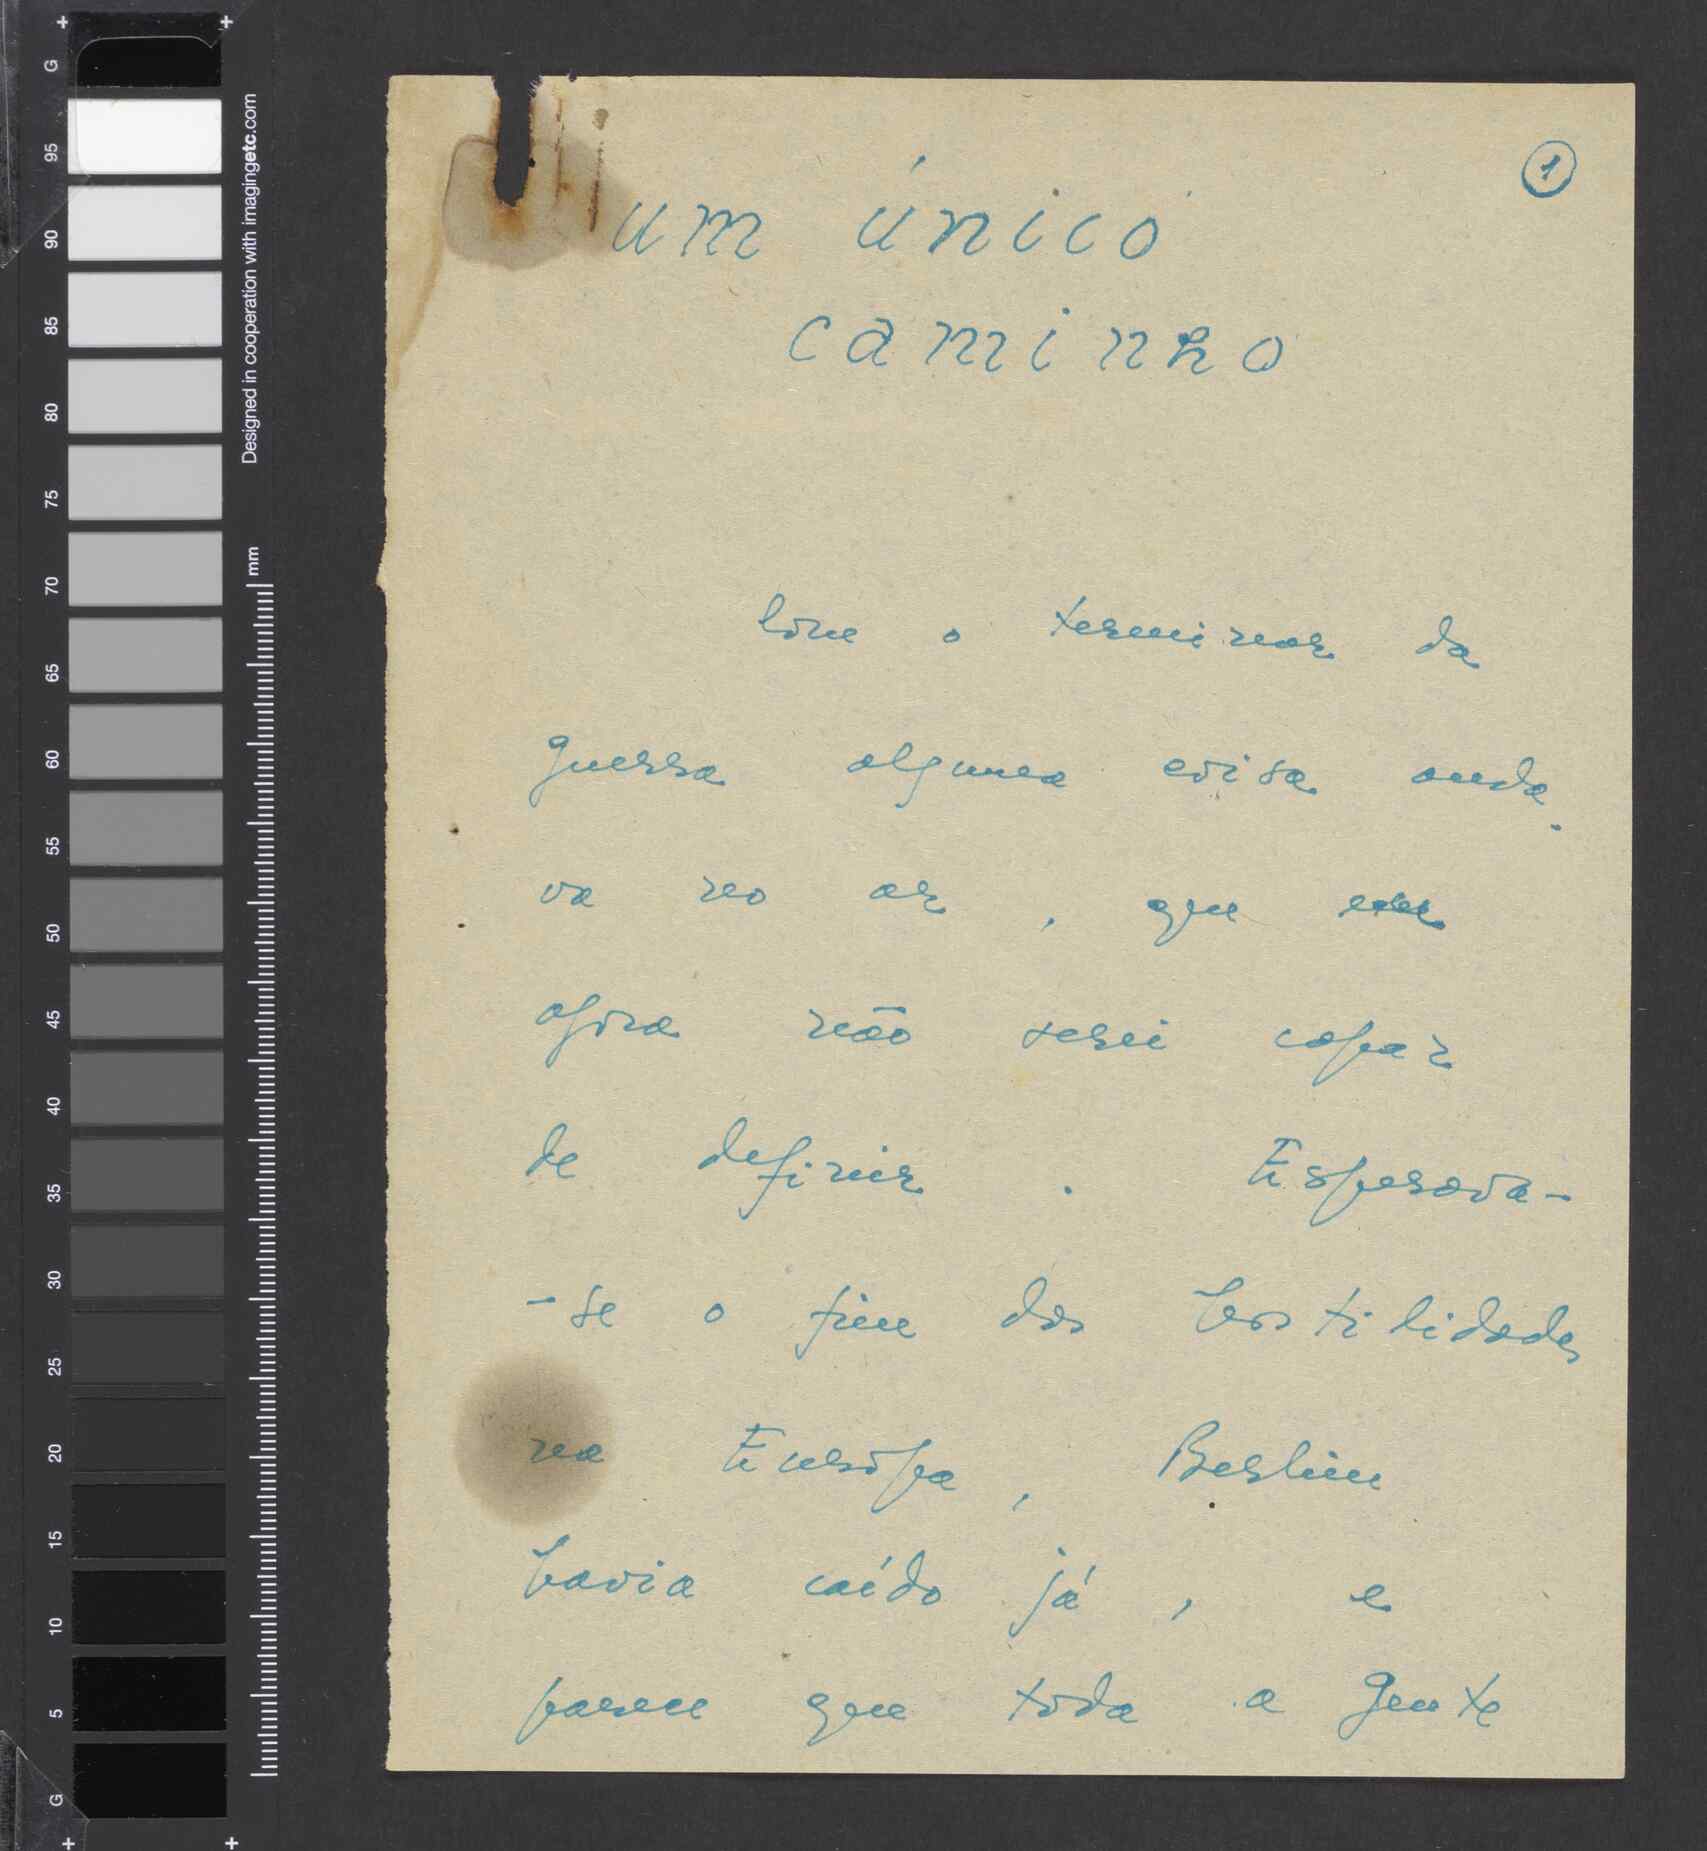 1
um único
caminho
Com o terminar da
guerra alguma coisa anda-
va no ar, que
agora não serei capaz
de definir. Esperava-
-se o fim das hostilidades
na Európa, Berlim
havia caído já, e
parece que toda a gente
G
95
90
85
80
75
70
65
60
55
50
45
40
35
30
25
20
15
10
5
G
Designed in cooperation with imagingetc.com
mm